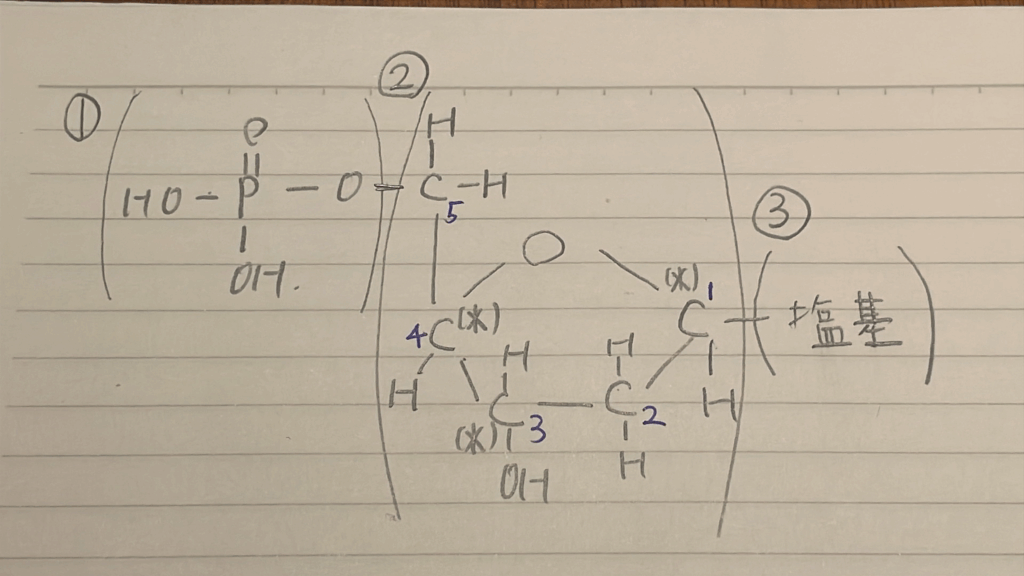 ① ②
H
O
HO-P-O-C-H
5
③
OH.
O
(*) 1
4 C (*) C - 塩基
H H H H
C - C
(*) 3 2
OH H